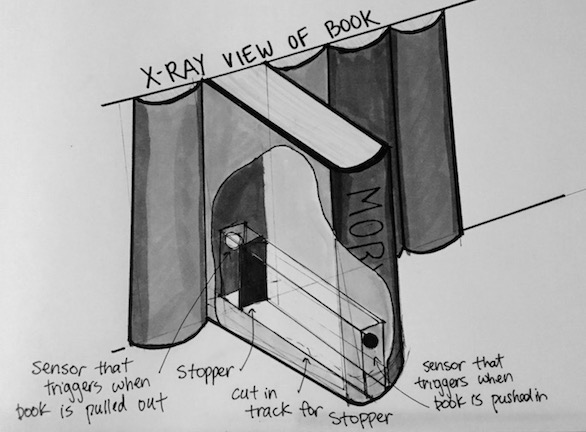 X-RAY VIEW OF BOOK
MOBY
sensor that
triggers when
book is pulled out
Stopper
cut in
track for stopper
sensor that
triggers when
book is pushed in